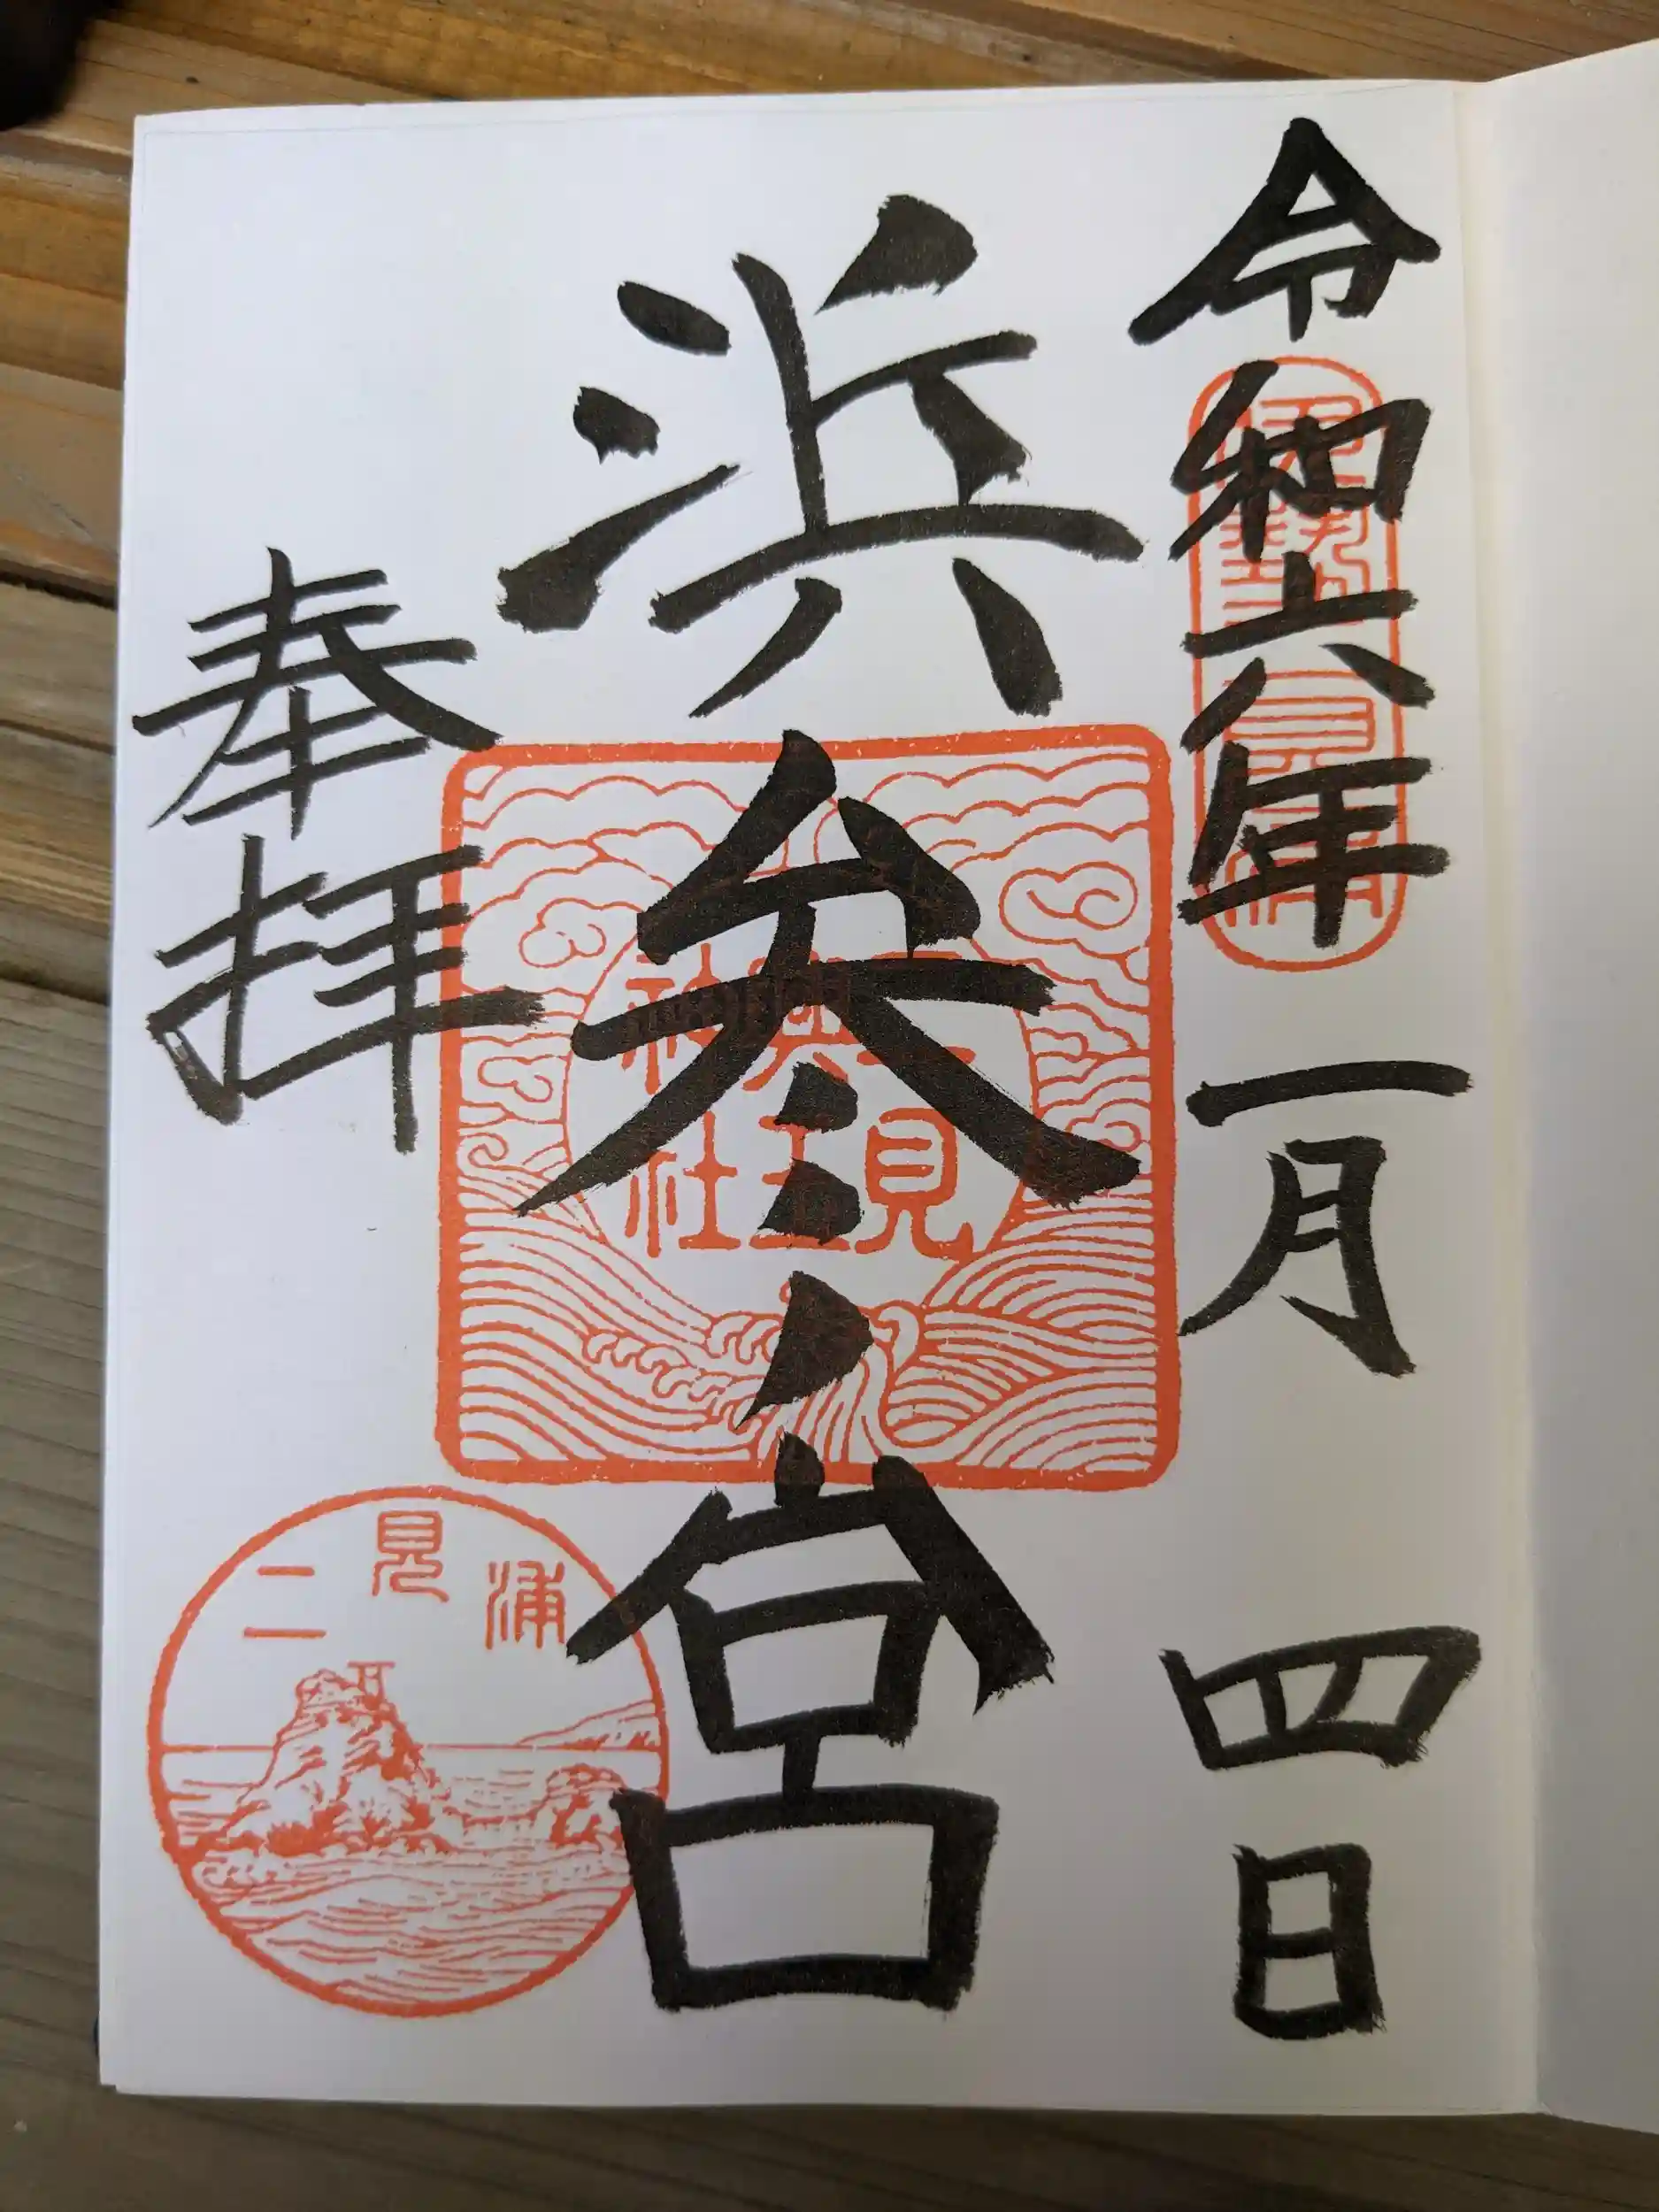 令和六年一月四日
伊勢二見浦
浜参宮
二見興玉神社
奉拝
二見浦